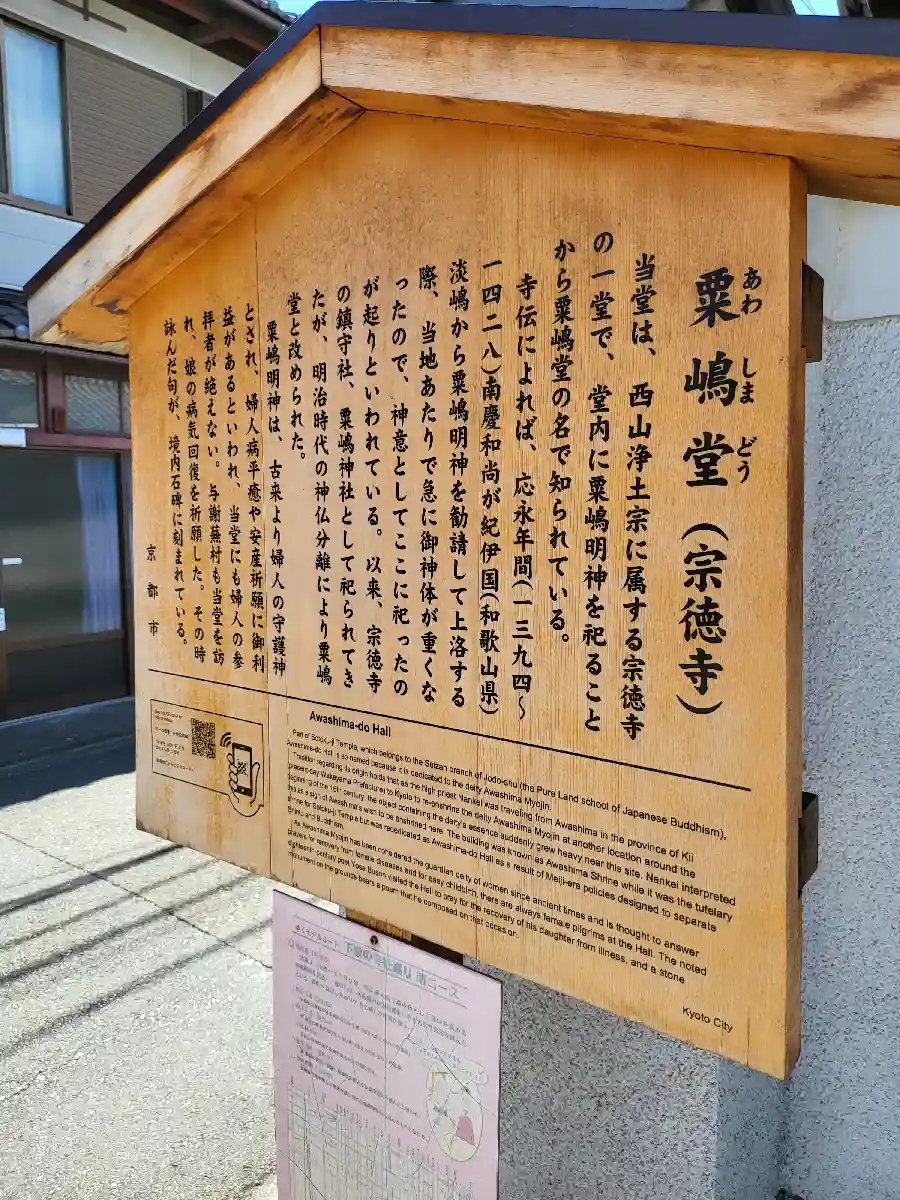 粟嶋堂（宗徳寺）
あわ しま どう
当堂は、西山浄土宗に属する宗徳寺
の一堂で、堂内に粟嶋明神を祀ること
から粟嶋堂の名で知られている。
寺伝によれば、応永年間(一三九四～
一四二八)南慶和尚が紀伊国(和歌山県)
淡嶋から粟嶋明神を勧請して上洛する
際、当地あたりで急に御神体が重くな
ったので、神意としてここに祀ったの
が起りといわれている。以来、宗徳寺
の鎮守社、粟嶋神社として祀られてき
たが、明治時代の神仏分離により粟嶋
堂と改められた。
粟嶋明神は、古来より婦人の守護神
とされ、婦人病平癒や安産祈願に御利
益があるといわれ、当堂にも婦人の参
拝者が絶えない。与謝蕪村も当堂を訪
れ、娘の病気回復を祈願した。その時
詠んだ句が、境内石碑に刻まれている。
京都市
Awashima-do Hall
Part of Sotoku-ji Temple, which belongs to the Seizan branch of Jodo-shu (the Pure Land school of Japanese Buddhism),
Awashima-do Hall is so named because it is dedicated to the deity Awashima Myojin.
Tradition regarding its origin holds that as the high priest Nankei was traveling from Awashima in the province of Kii
(present-day Wakayama Prefecture) to Kyoto to re-enshrine the deity Awashima Myojin at another location around the
beginning of the 15th century, the object containing the deity's essence suddenly grew heavy near this site. Nankei interpreted
this as a sign of Awashima's wish to be enshrined here. The building was known as Awashima Shrine while it was the tutelary
shrine for Sotoku-ji Temple but was rededicated as Awashima-do Hall as a result of Meiji-era policies designed to separate
Shinto and Buddhism.
As Awashima Myojin has been considered the guardian deity of women since ancient times and is thought to answer
prayers for recovery from female diseases and for easy childbirth, there are always female pilgrims at the Hall. The noted
eighteenth-century poet Yosa Buson visited the Hall to pray for the recovery of his daughter from illness, and a stone
monument on the grounds bears a poem that he composed on that occasion.
Kyoto City
歩くモデルルート
下京の寺社巡り 南コース